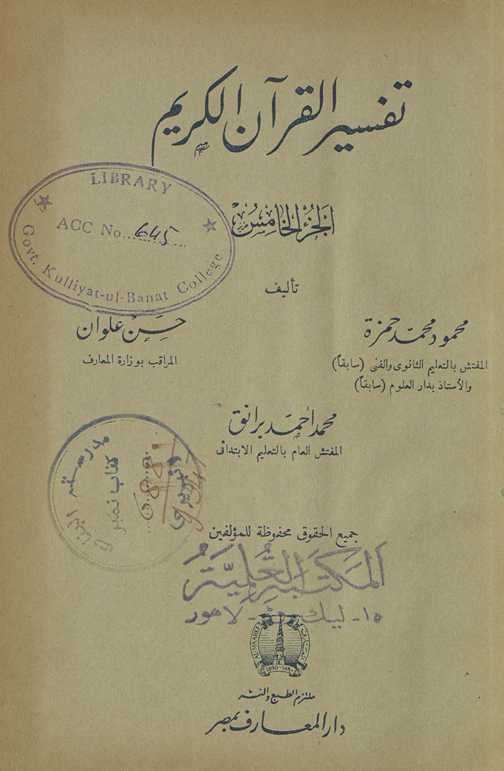 تفسير القرآن الكريم
الجزء الخامس
LIBRARY
ACC No. 645
Govt. Kulliyat-ul-Banat College
تأليف
محمود محمد حمزة
المفتش بالتعليم الثانوى والفنى (سابقاً)
والأستاذ بدار العلوم (سابقاً)
حسن علوان
المراقب بوزارة المعارف
محمد أحمد برانق
المفتش العام بالتعليم الابتدائى
مدرسة البنات
كتاب نمبر
جميع الحقوق محفوظة للمؤلفين
المكتبة العلمية
١٥ - ليك روڈ - لاهور
ملتزم الطبع والنشر
دار المعارف بمصر